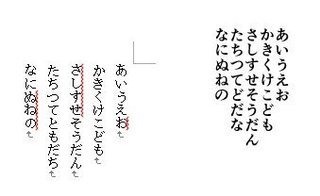 あいうえお
かきくけこども
さしすせそうだん
たちつてどだな
なにぬねの
あいうえお
かきくけこども
さしすせそうだん
たちつてともだち
なにぬねの